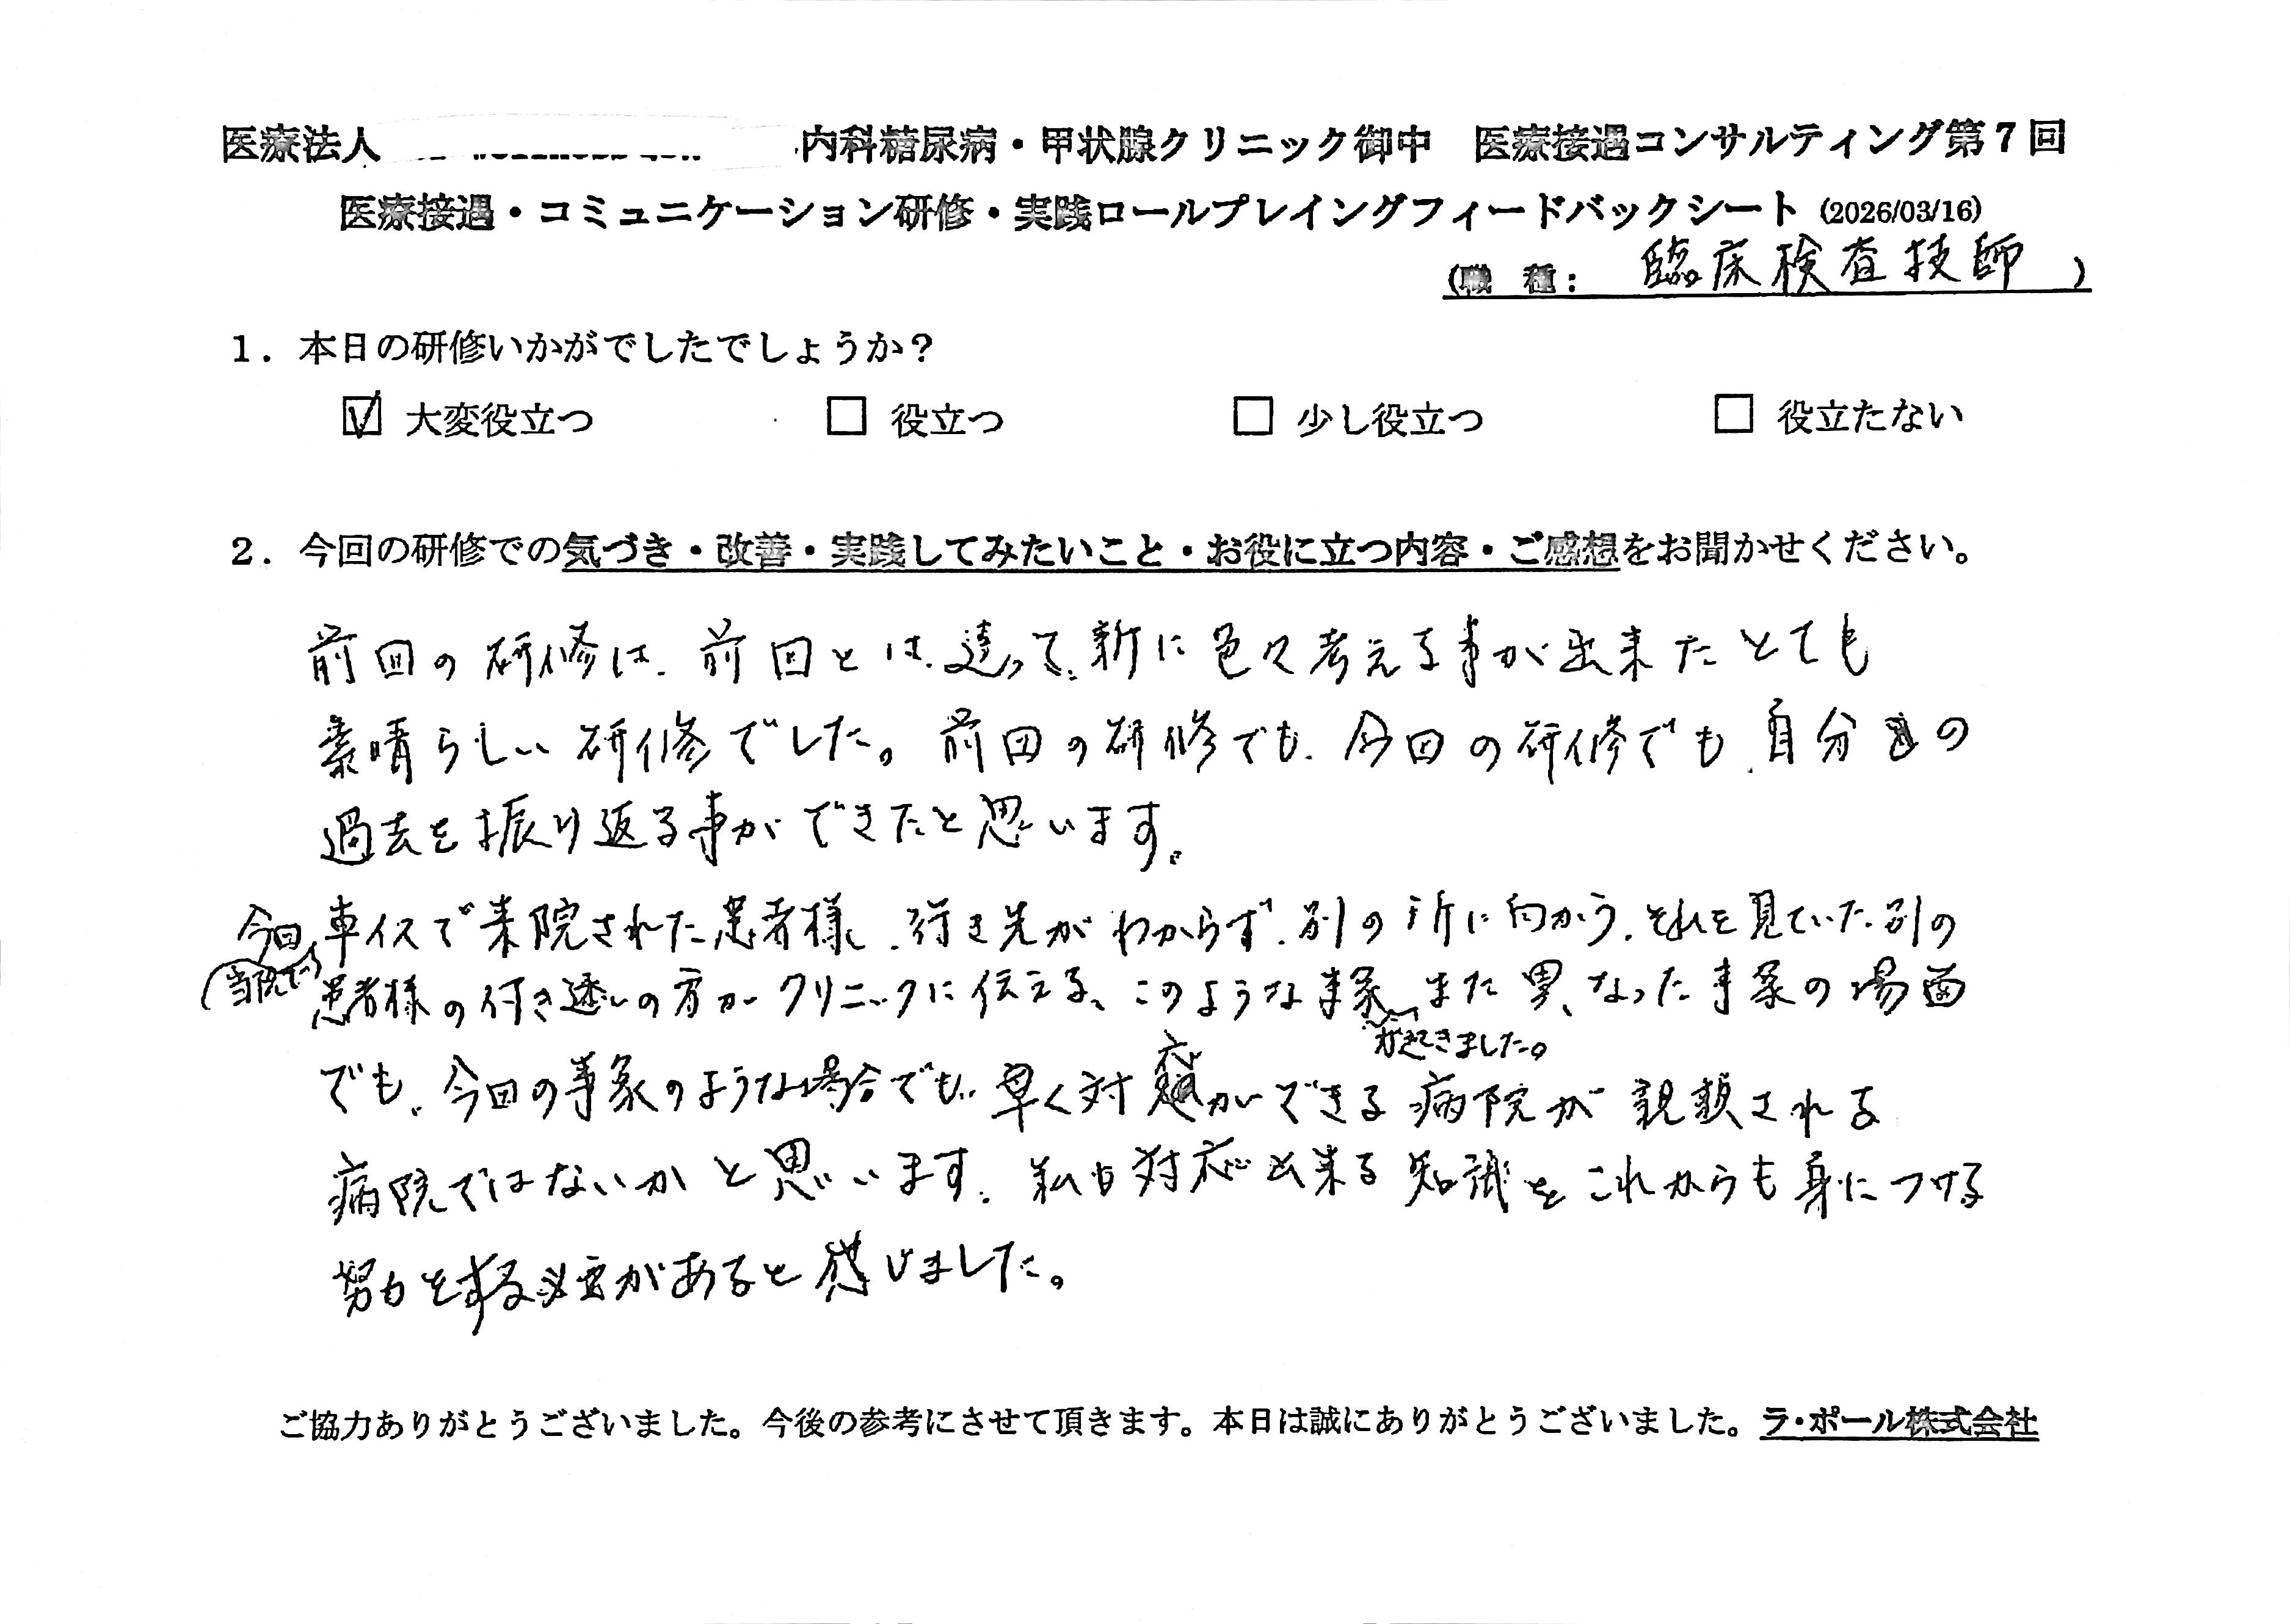 医療法人 内科糖尿病・甲状腺クリニック御中 医療接遇コンサルティング第7回
医療接遇・コミュニケーション研修・実践ロールプレイングフィードバックシート (2026/03/16)
(職 種: 臨床検査技師 )
1. 本日の研修いかがでしたでしょうか?
☑ 大変役立つ □ 役立つ □ 少し役立つ □ 役立たない
2. 今回の研修での気づき・改善・実践してみたいこと・お役に立つ内容・ご感想をお聞かせください。
前回の研修は、前回とは違って、新に色々考える事が出来たとても
素晴らしい研修でした。前回の研修でも、今回の研修でも、自分の
過去を振り返る事ができたと思います。
今回、車イスで来院された患者様、行き先がわからず、別の所に向かう、それを見ていた別の
(当院で)患者様の付き添いの方がクリニックに伝える、このような事象 また異なった事象の場面
が起きました。
でも、今回の事象のような場合でも、早く対応ができる病院が親頼される
病院ではないかと思います。私も対応出来る知識をこれからも身につける
努力をする必要があると感じました。
ご協力ありがとうございました。今後の参考にさせて頂きます。本日は誠にありがとうございました。ラ・ポール株式会社